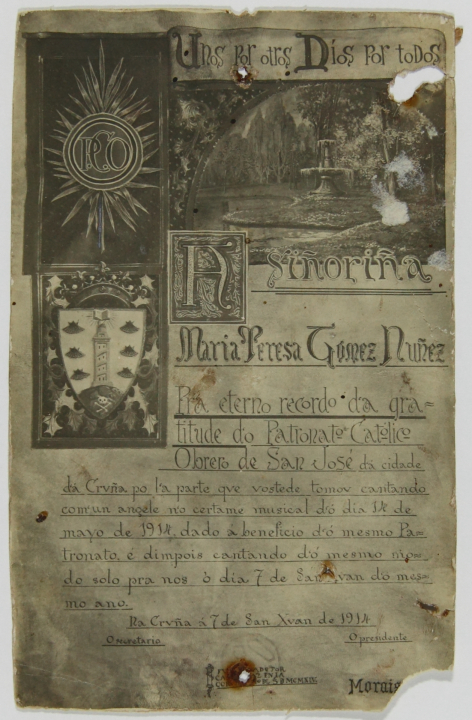 Unos por otros Dios por todos
A Siñoriña
Maria Teresa Gómez Nuñez
Pra eterno recordo d'a gra-
titude do Patronato Católico
Obrero de San José dá cidade
dá Cruña po l'a parte que vostede tomou cantando
com'un angele n'o certame musical d'ó dia 14 de
mayo de 1914, dado á beneficio d'ó mesmo Pa-
tronato, é dimpois cantando d'o mesmo mo-
do solo pra nos ò dia 7 de San Xvan d'o mes-
mo ano.
Na Cruña á 7 de San Xvan de 1914
O secretario O presidente
Morais